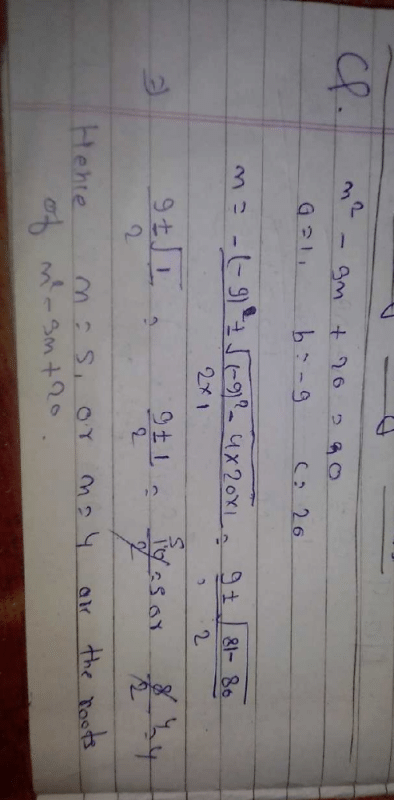 Q.
m² - 9m + 20 = 0
a = 1, b = -9 c = 20
m = -(-9) ± √(-9)² - 4×20×1 / 2×1 = 9 ± √81 - 80 / 2
⇒ 9 ± √1 / 2 = 9 ± 1 / 2 = 10 / 2 = 5 or 8 / 2 = 4
Hence m = 5, or m = 4 are the roots
of m² - 9m + 20.